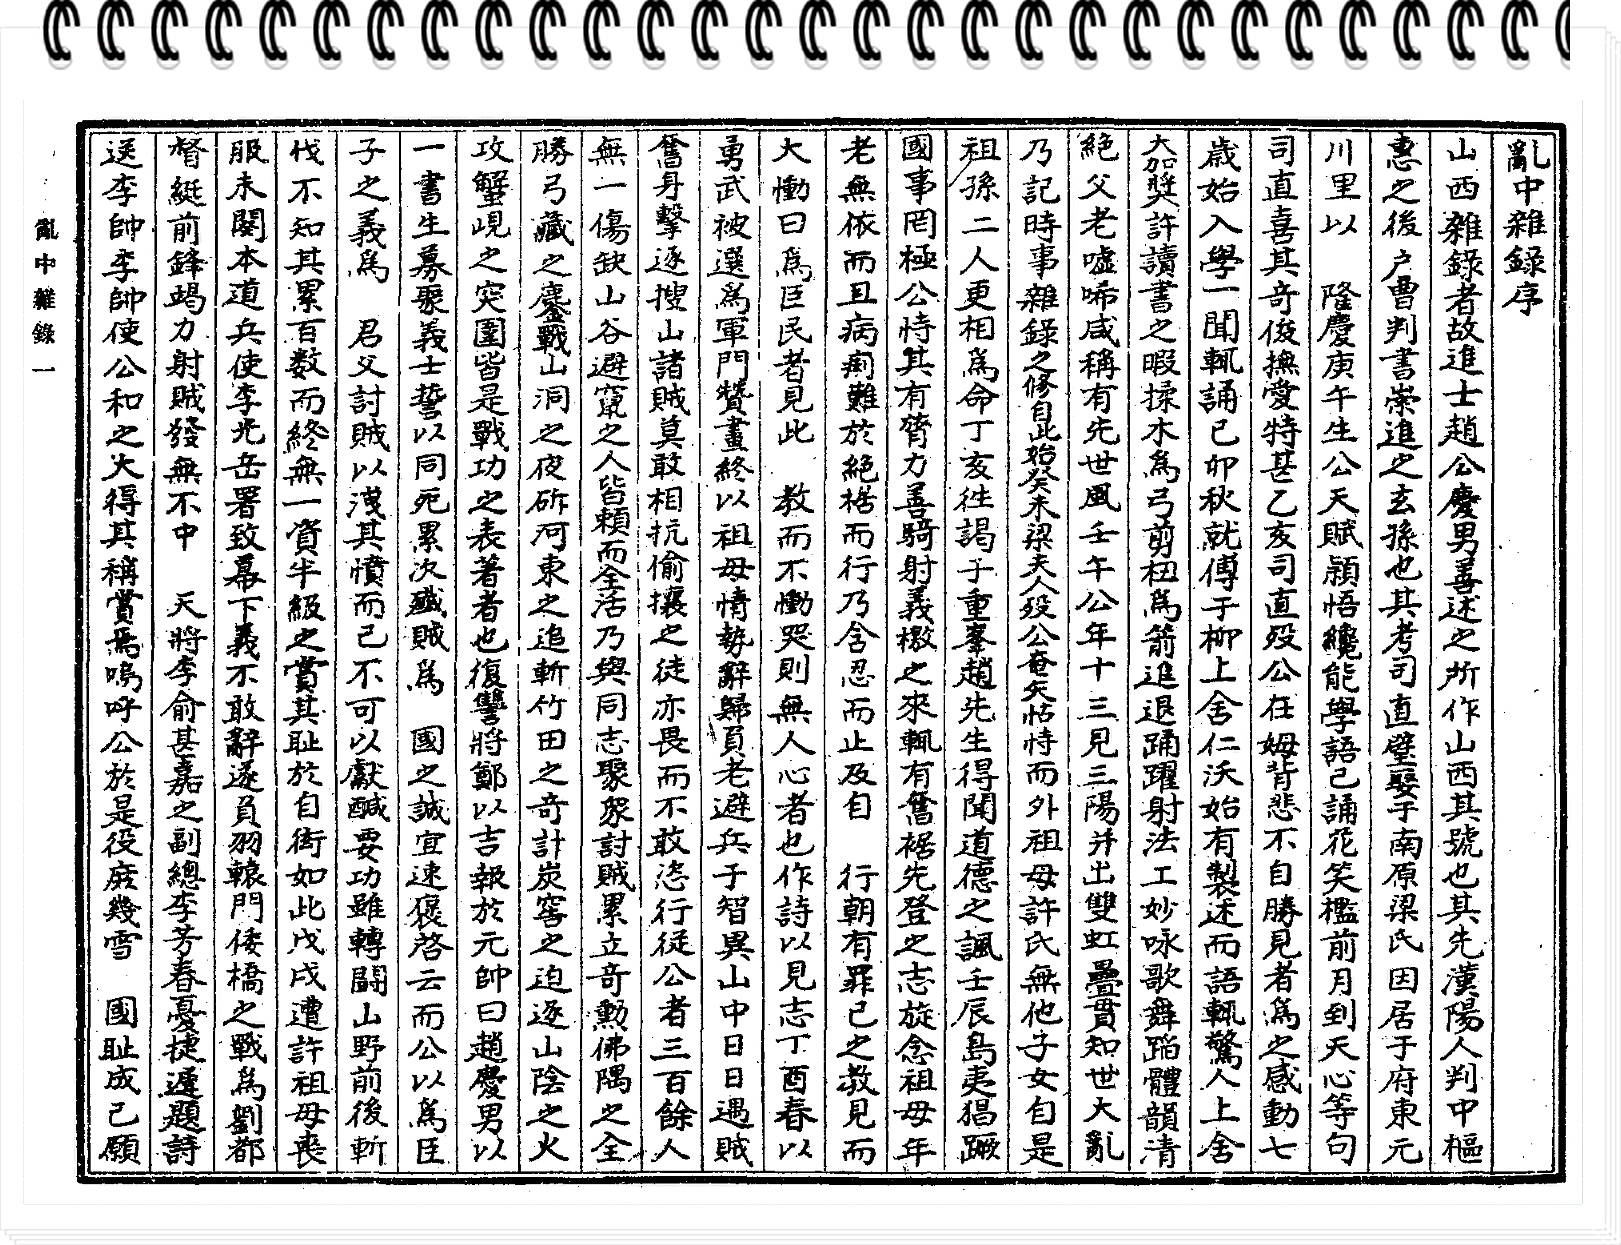 亂中雜錄序
山西雜錄者故進士趙公慶男善述之所作山西其號也其先漢陽人判中樞
惠之後戶曹判書崇進之玄孫也其考司直璧娶于南原梁氏因居于府東元
川里以 隆慶庚午生公天賦頴悟纔能學語已誦花笑檻前月到天心等句
司直喜其奇俊撫愛特甚乙亥司直歿公在姆背悲不自勝見者爲之感動七
歲始入學一聞輒誦己卯秋就傅于柳上舍仁沃始有製述而語輒驚人上舍
大加獎許讀書之暇揉木爲弓剪杻爲箭進退踊躍射法工妙咏歌舞蹈體韻清
絕父老噓唏咸稱有先世風壬午公年十三見三陽并出雙虹疊貫知世大亂
乃記時事雜錄之修自此始癸未梁夫人歿公奄失怙恃而外祖母許氏無他子女自是
祖孫二人更相爲命丁亥徃謁于重峯趙先生得聞道德之諷壬辰島夷猖蹶
國事罔極公恃其有膂力善騎射義檄之來輒有奮裾先登之志旋念祖母年
老無依而且病痢難於絕裾而行乃含忍而止及自 行朝有罪己之教見而
大慟曰爲臣民者見此 教而不慟哭則無人心者也作詩以見志丁酉春以
勇武被選爲軍門贊畫終以祖母情勢辭歸負老避兵于智異山中日日遇賊
奮身擊逐搜山諸賊莫敢相抗偷攘之徒亦畏而不敢恣行從公者三百餘人
無一傷缺山谷避竄之人皆賴而全活乃與同志聚衆討賊累立奇勳佛隅之全
勝弓藏之鏖戰山洞之夜斫河東之追斬竹田之奇計炭窖之迫逐山陰之火
攻蟹峴之突圍皆是戰功之表著者也復讐將鄭以吉報於元帥曰趙慶男以
一書生募聚義士誓以同死累次殲賊爲 國之誠宜速褒啓云而公以爲臣
子之義爲 君父討賊以洩其憤而已不可以獻馘要功雖轉鬪山野前後斬
伐不知其累百数而終無一資半級之賞其恥於自衒如此戊戌遭許祖母喪
服未闋本道兵使李光岳署致幕下義不敢辭遂負羽轅門倭橋之戰爲劉都
督艇前鋒竭力射賊發無不中 天將李俞甚嘉之副總李芳春憂捷遲題詩
送李帥李帥使公和之大得其稱賞焉嗚呼公於是役庶幾雪 國耻成己願
亂中雜錄 一